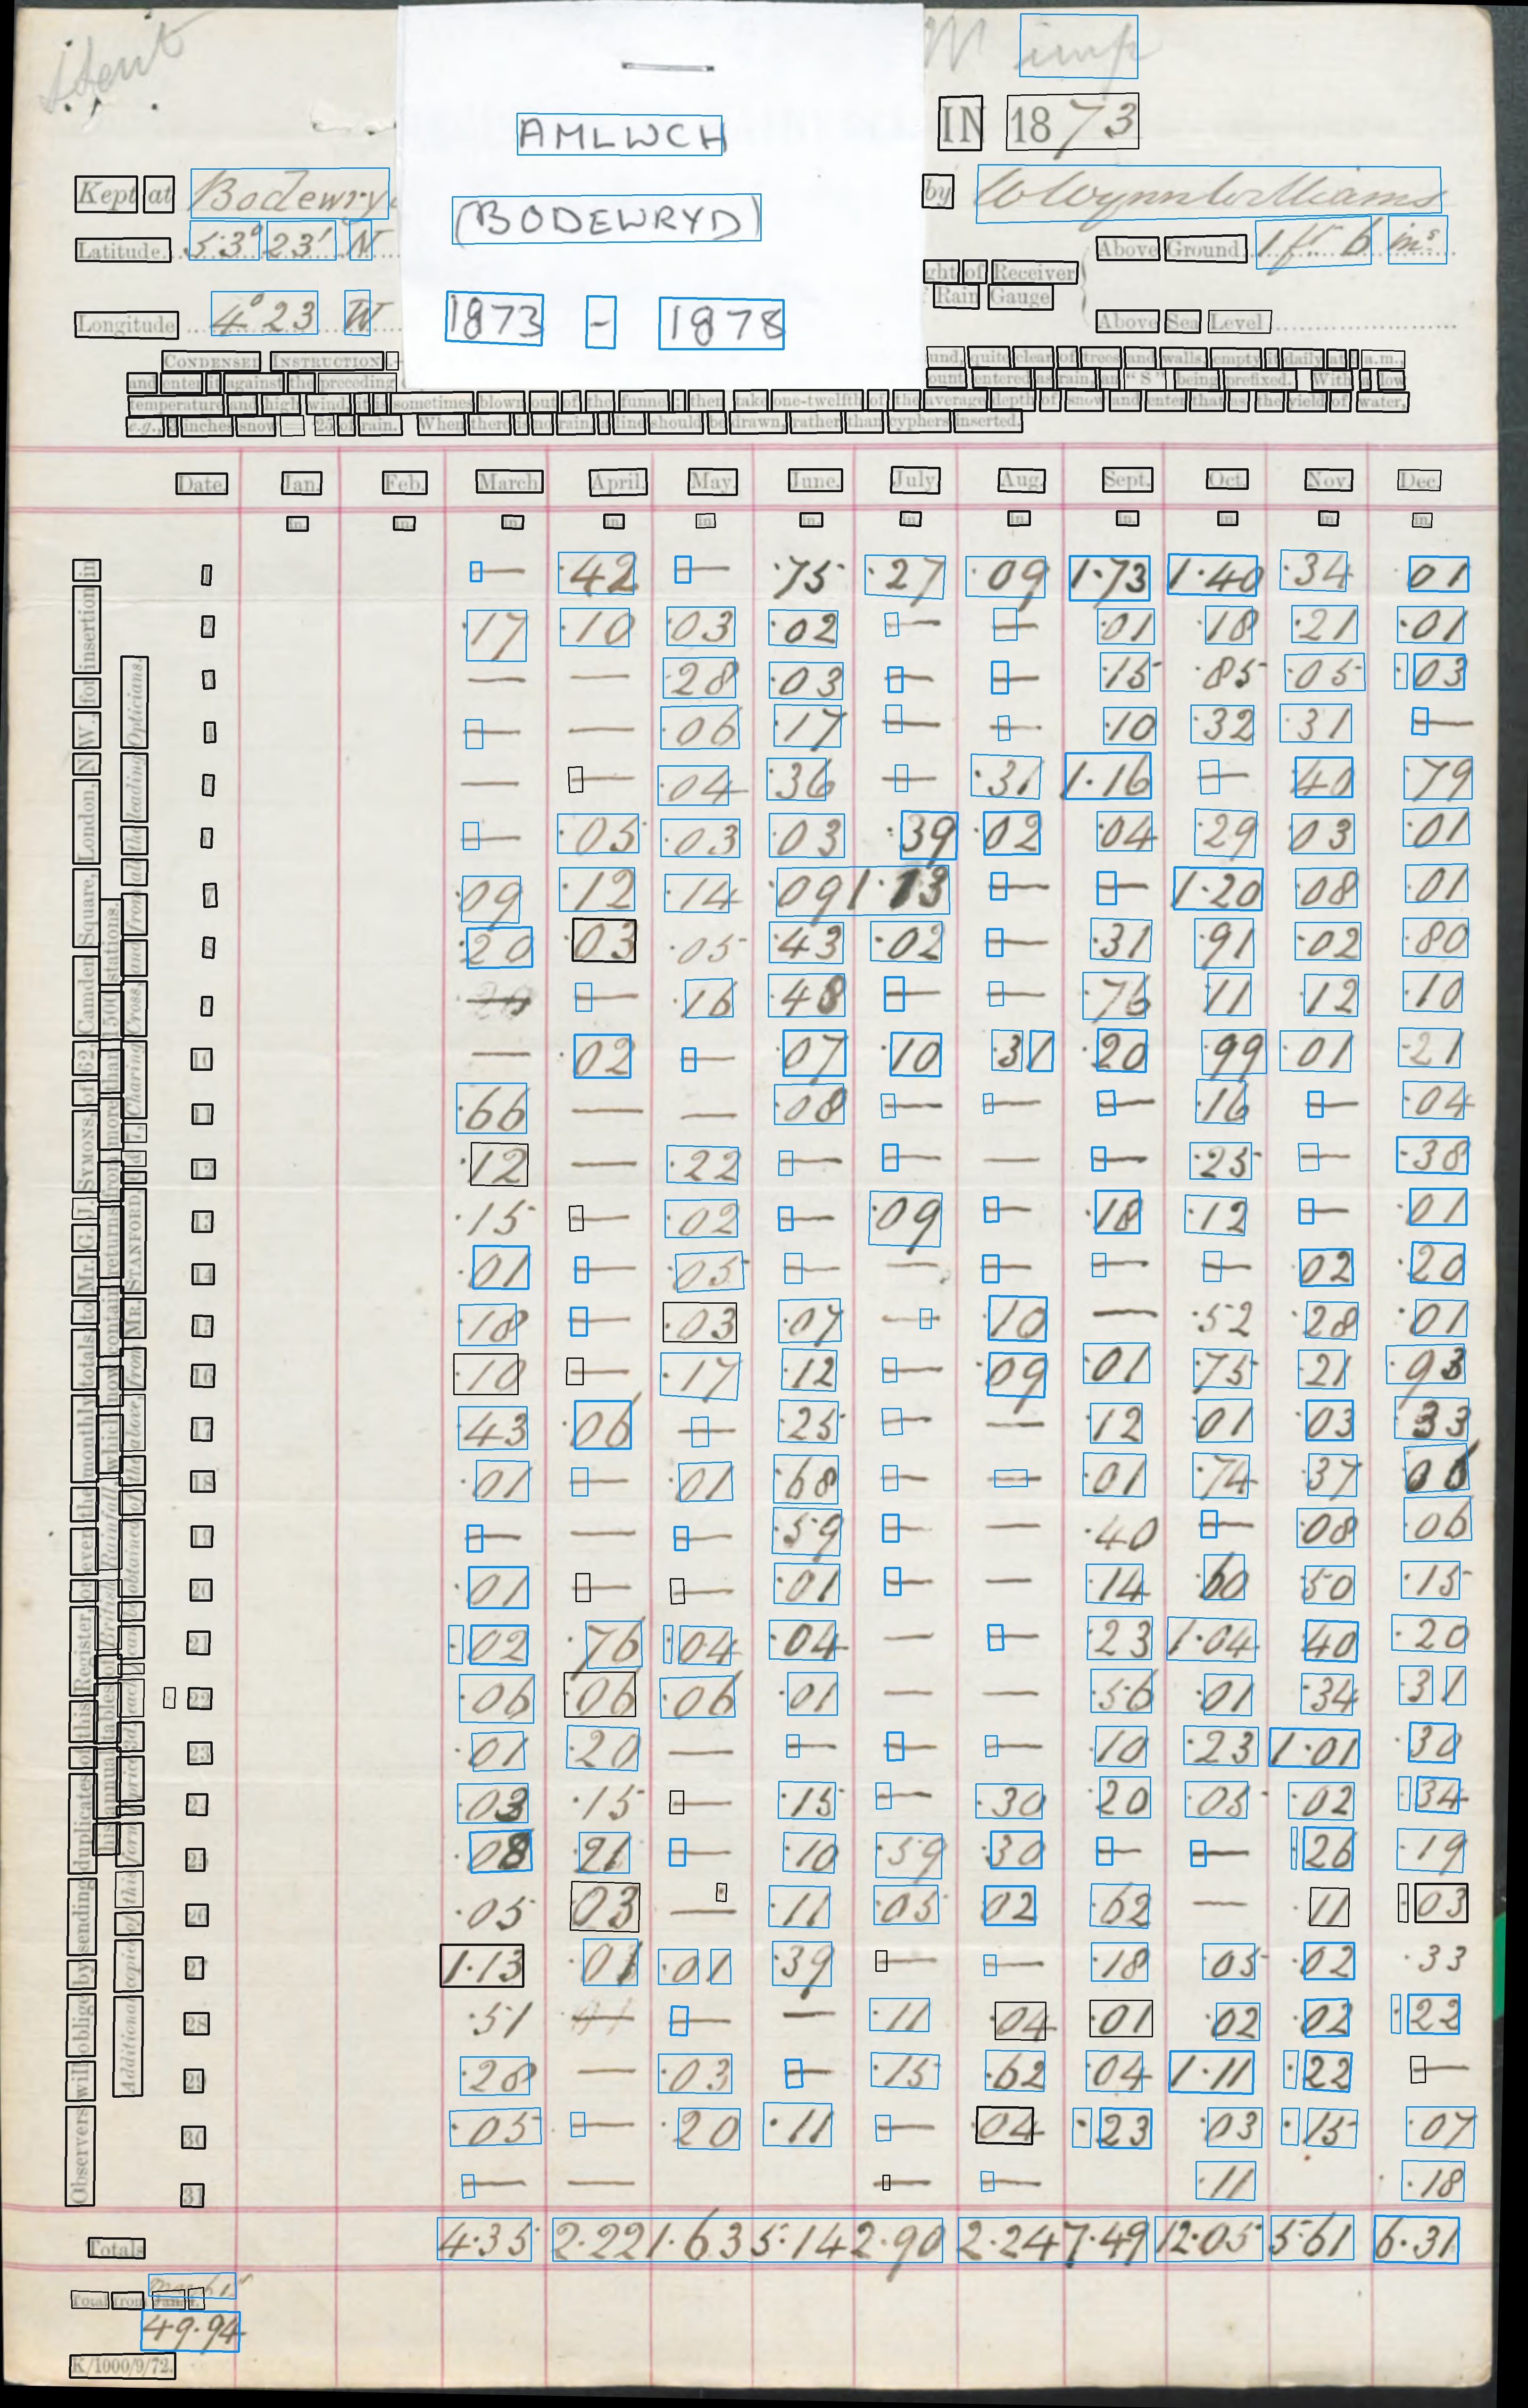 Stent
M imp
AMLWCH
(BODEWRYD)
1873 - 1878
IN 1873
Kept at Bodewry by W Wynn Williams
Latitude 53° 23' N
Longitude 4° 23 W
ght of Receiver
Rain Gauge
Above Ground 1 ft 6 ins
Above Sea Level
CONDENSED INSTRUCTION
und, quite clear of trees and walls, empty it daily at 9 a.m.,
and enter it against the preceding
ount entered as rain, an "S" being prefixed. With a low
temperature and high wind, it is sometimes blown out of the funnel; then take one-twelfth of the average depth of snow and enter that as the yield of water,
e.g., 3 inches snow = ·25 of rain. When there is no rain, a line should be drawn, rather than cyphers inserted.
Date. Jan. Feb. March. April. May. June. July. Aug. Sept. Oct. Nov. Dec.
in. in. in. in. in. in. in. in. in. in. in. in.
1 — ·42 — ·75 ·27 ·09 1·73 1·40 ·34 ·01
2 ·17 ·10 ·03 ·02 — — ·01 ·18 ·21 ·01
3 — — ·28 ·03 — — ·15 ·85 ·05 ·03
4 — — ·06 ·17 — — ·10 ·32 ·31 —
5 — — ·04 ·36 — ·31 1·16 — ·40 ·79
6 — ·05 ·03 ·03 ·39 ·02 ·04 ·29 ·03 ·01
7 ·09 ·12 ·14 ·09 1·13 — — 1·20 ·08 ·01
8 ·20 ·03 ·05 ·43 ·02 — ·31 ·91 ·02 ·80
9 — — ·16 ·48 — — ·76 ·11 ·12 ·10
10 — ·02 — ·07 ·10 ·31 ·20 ·99 ·01 ·21
11 ·66 — — ·08 — — — ·16 — ·04
12 ·12 — ·22 — — — — ·25 — ·38
13 ·15 — ·02 — ·09 — ·18 ·12 — ·01
14 ·01 — ·05 — — — — — ·02 ·20
15 ·18 — ·03 ·07 — ·10 — ·52 ·28 ·01
16 ·10 — ·17 ·12 — ·09 ·01 ·75 ·21 ·93
17 ·43 ·06 — ·25 — — ·12 ·01 ·03 ·33
18 ·01 — ·01 ·68 — — ·01 ·74 ·37 ·06
19 — — — ·59 — — ·40 — ·08 ·06
20 ·01 — — ·01 — — ·14 ·60 ·50 ·15
21 ·02 ·76 ·04 ·04 — — ·23 1·04 ·40 ·20
22 ·06 ·06 ·06 ·01 — — ·56 ·01 ·34 ·31
23 ·01 ·20 — — — — ·10 ·23 1·01 ·30
24 ·03 ·15 — ·15 — ·30 ·20 ·05 ·02 ·34
25 ·08 ·21 — ·10 ·59 ·30 — — ·26 ·19
26 ·05 ·03 — ·11 ·05 ·02 ·62 — ·11 ·03
27 1·13 ·01 ·01 ·39 — — ·18 ·05 ·02 ·33
28 ·51 — — — ·11 ·04 ·01 ·02 ·02 ·22
29 ·28 — ·03 — ·15 ·62 ·04 1·11 ·22 —
30 ·05 — ·20 ·11 — ·04 ·23 ·03 ·15 ·07
31 — — — — ·11 ·18
Totals 4·35 2·22 1·63 5·14 2·90 2·24 7·49 12·05 5·61 6·31
March 1st
Total from Jan. 1.
49·94
K/1000/9/72.
Observers will oblige by sending duplicates of this Register, or even the monthly totals to Mr. G. J. SYMONS, of 62, Camden Square, London, N.W., for insertion in
his annual tables of British Rainfall, which now contain returns from more than 1500 stations.
Additional copies of this form, price 3d. each, can be obtained of the above, from MR. STANFORD, 6 & 7, Charing Cross, and from all the leading Opticians.